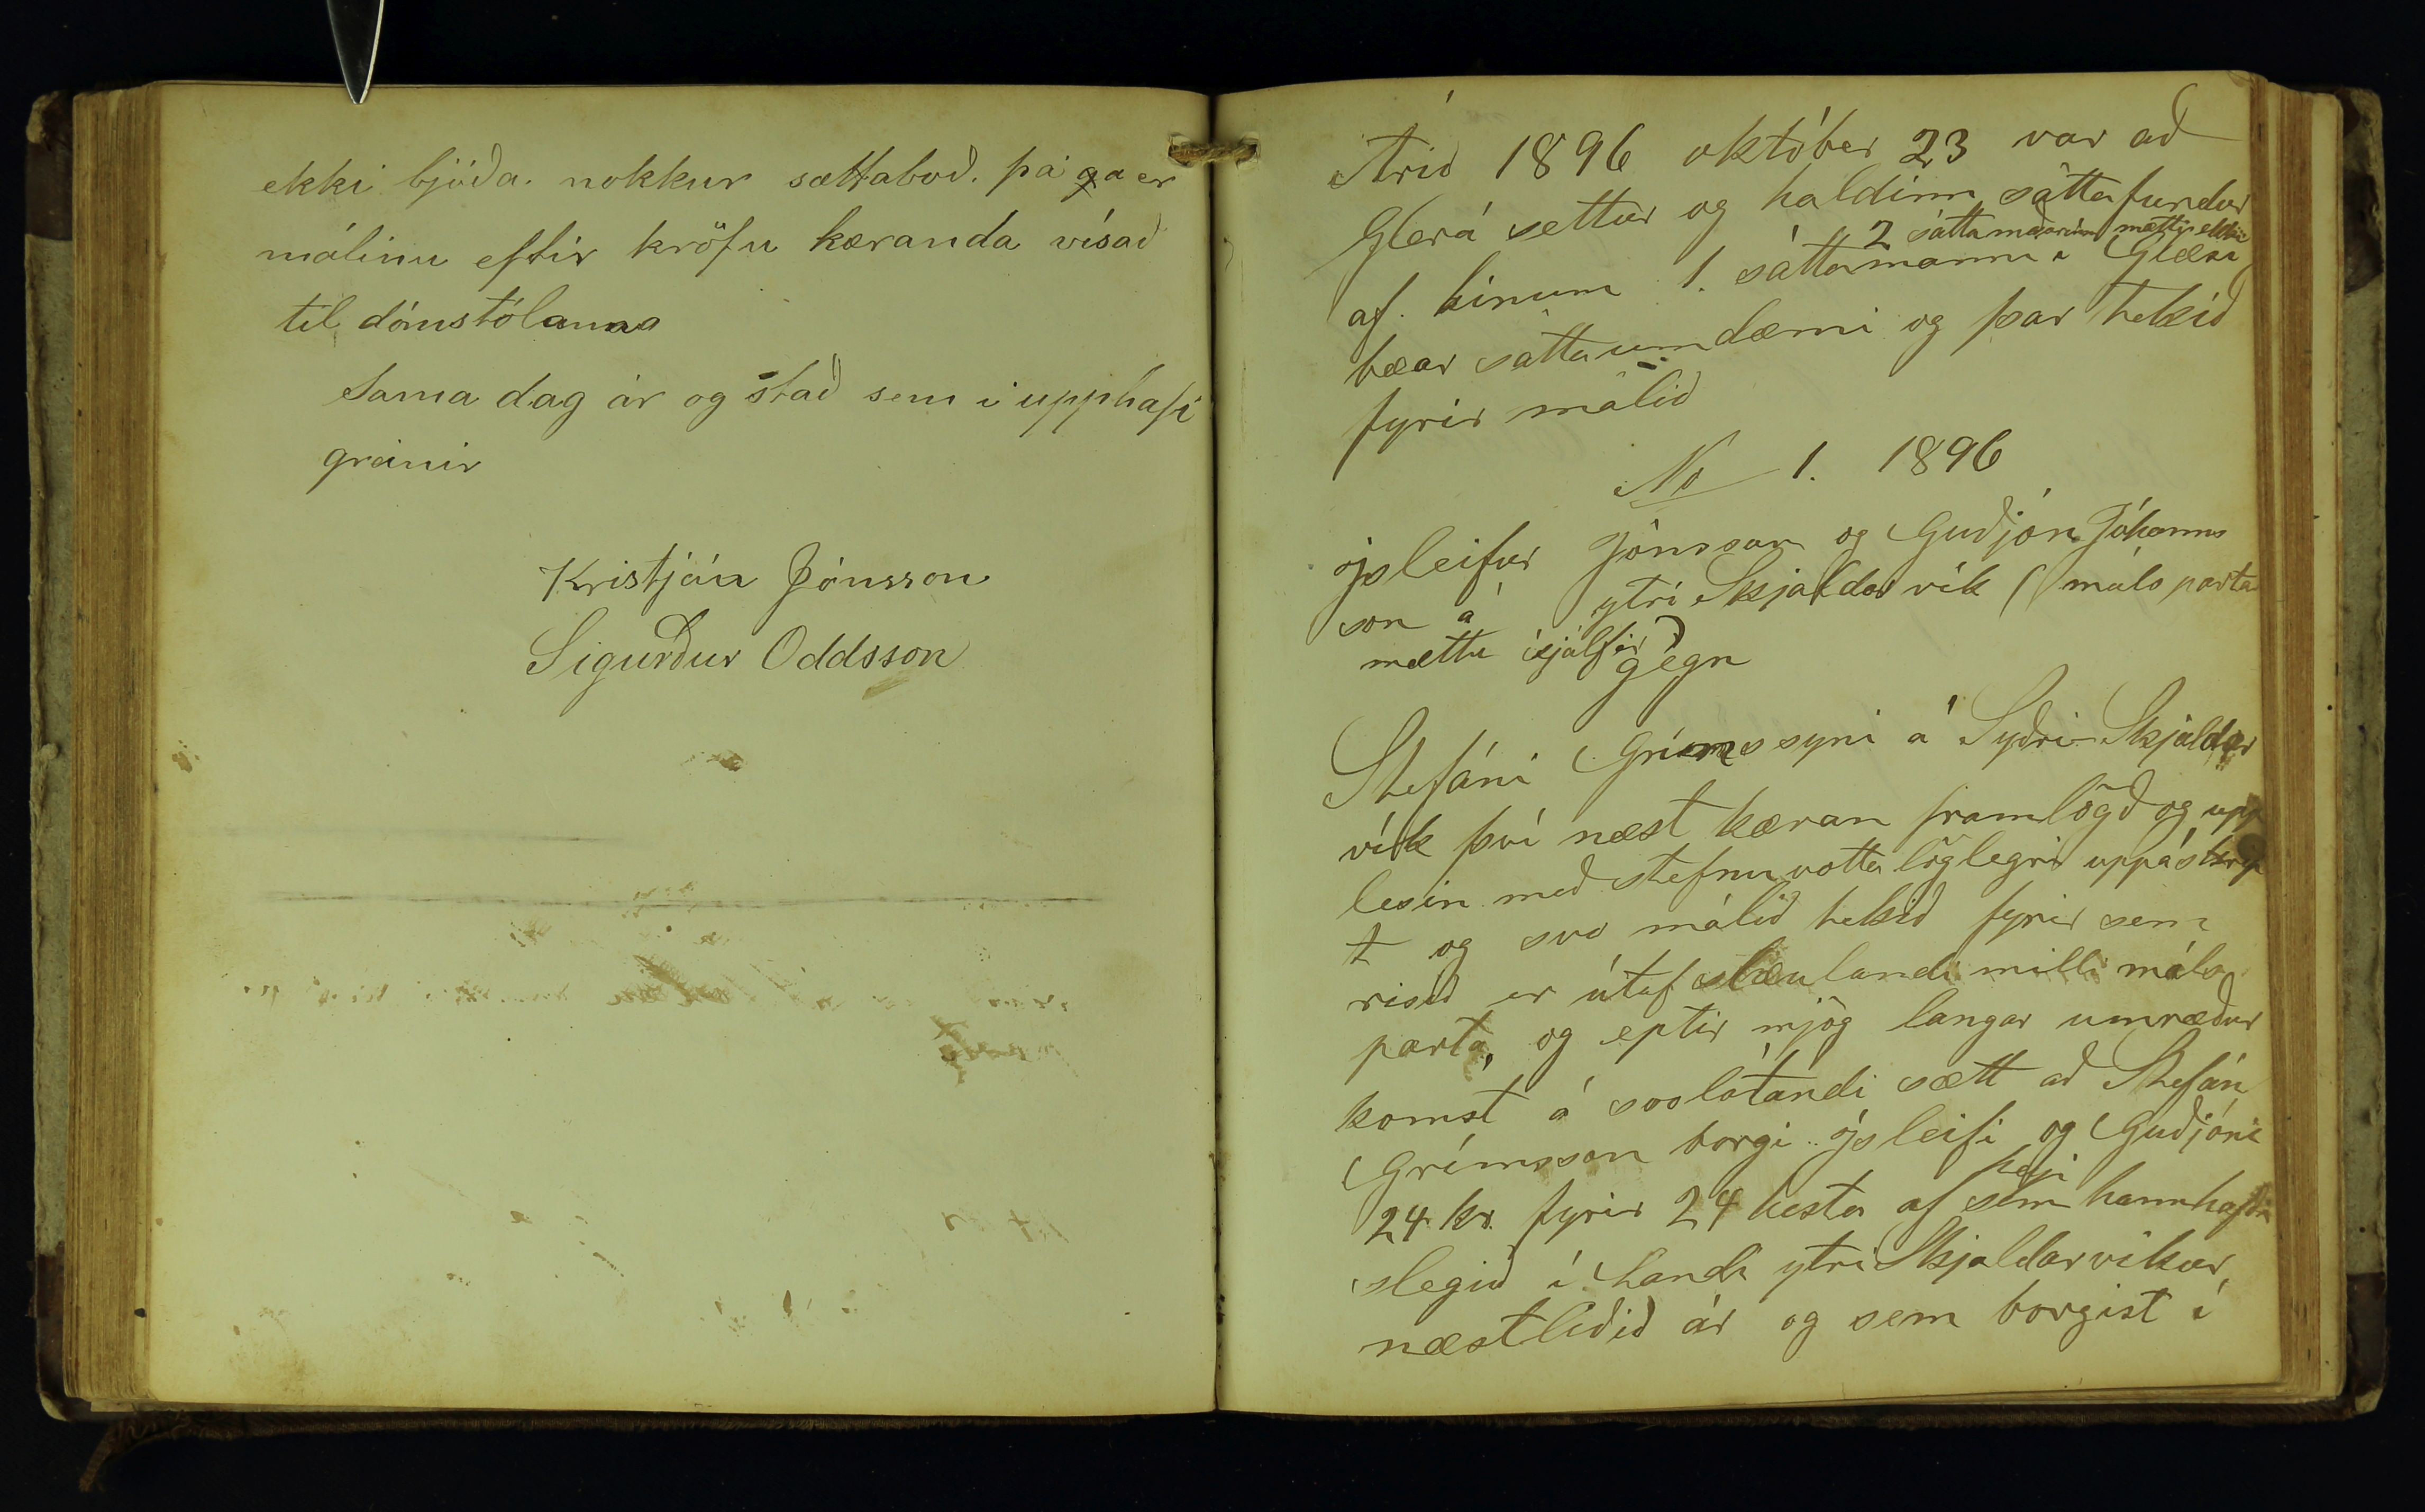 ekki bjóða nokkur sættaboð, þá er
málinu eftir kröfu kæranda vísað
til dómstólanna
Sama dag ár og stað sem í upphafi
greinir
Kristján Jónsson
Sigurður Oddsson
Árið 1896 október 23 var að
Glerá settur og haldinn sáttafundur
2 sáttamaðurinn mætti ekki
af hinum 1. sáttamanni í Glæsi
bæar sáttaumdæmi og þar tekið
fyrir málið
No 1. 1896
Ísleifur Jónsson og Guðjón Jóhanns
son á ytri Skjaldarvík ( máls parta
mættu sjálfir )
gegn
Stefáni Grímssyni á Syðri-Skjaldar
vík því næst kæran framlögð og upp
lesin með stefnuvotta löglegri uppáskrip
t og svo málið tekið fyrir sem
risið er útaf slæulandi milli máls
parta, og eptir mjög langar umræður
komst á svolátandi sætt að Stefán
Grímsson borgi Ísleifi og Guðjóni
heyi
24 kr. fyrir 24 hesta af sem hann hafði
slegið í landi ytri Skjaldarvikur,
næstliðið ár og sem borgist í